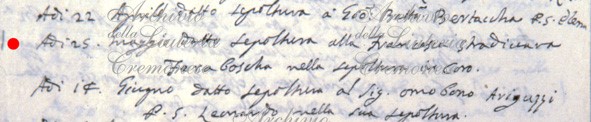 Adi 22 Aprile datto sepoltura a Gio: Batta Bertaccha P. S.
Adi 25. maggio datto sepoltura alla Francesca Stradivara
Fara Boscha nella sepoltura in Coro.
Adi 14. Giugno datto sepoltura al Sig. omo bono Ariguzzi
P. S. Leonardo nella sua sepoltura.